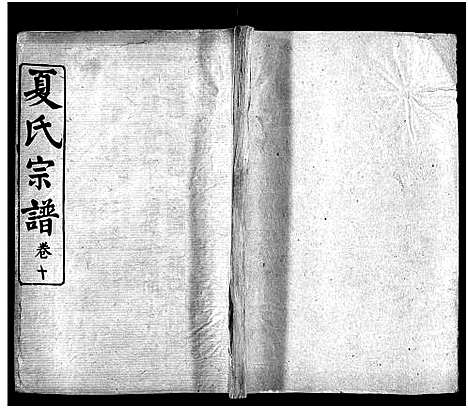 夏氏宗譜 卷十